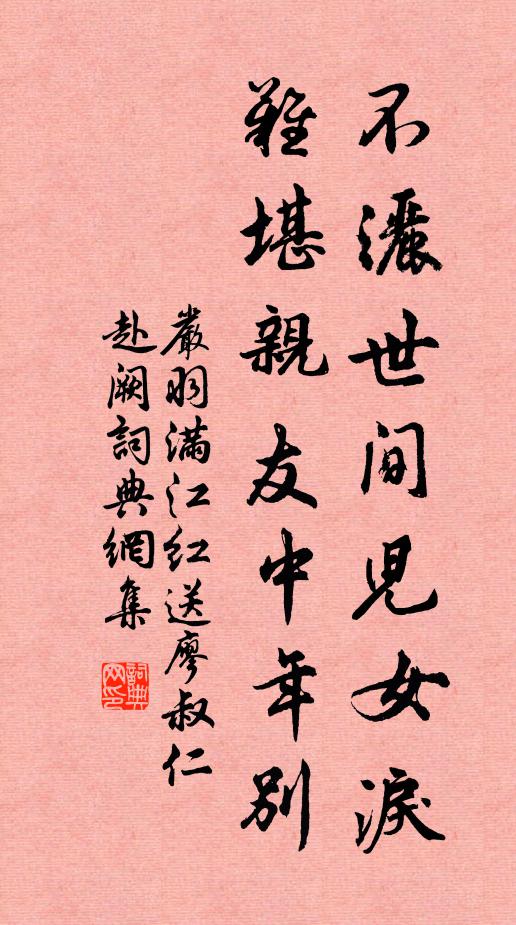 不灑世間兒女淚
難堪親友中年別
嚴羽滿江紅送廖叔仁
赴闕詞典網集
詞典
网印